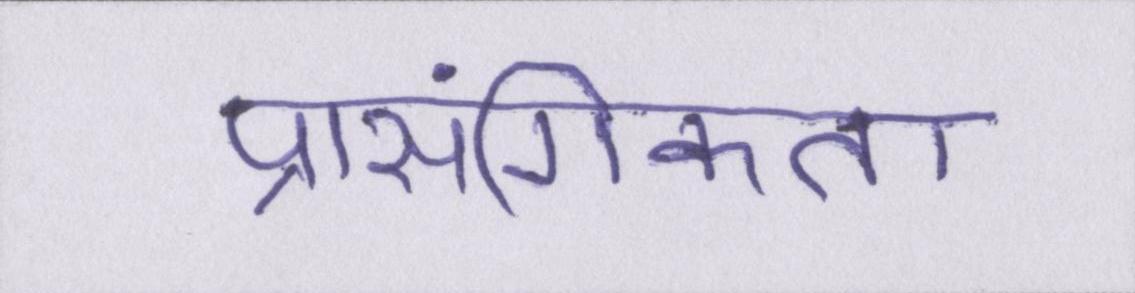 प्रासंगिकता